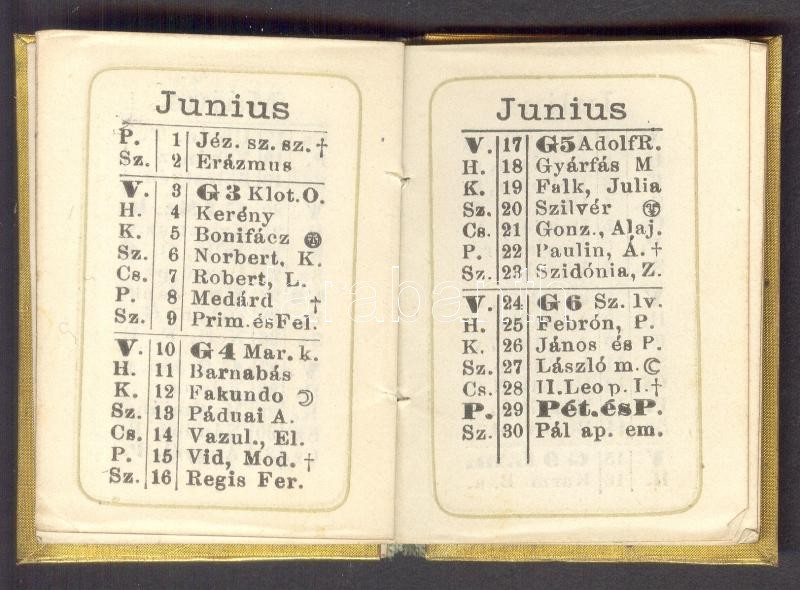 Junius
P. 1 Jéz. sz. sz. †
Sz. 2 Erázmus
V. 3 G 3 Klot. O.
H. 4 Kerény
K. 5 Bonifácz
Sz. 6 Norbert, K.
Cs. 7 Robert, L.
P. 8 Medárd †
Sz. 9 Prim. és Fel.
V. 10 G 4 Mar. k.
H. 11 Barnabás
K. 12 Fakundo ☽
Sz. 13 Páduai A.
Cs. 14 Vazul., El.
P. 15 Vid, Mod. †
Sz. 16 Regis Fer.
Junius
V. 17 G 5 Adolf R.
H. 18 Gyárfás M
K. 19 Falk, Julia
Sz. 20 Szilvér
Cs. 21 Gonz., Alaj.
P. 22 Paulin, Á. †
Sz. 23 Szidónia, Z.
V. 24 G 6 Sz. Iv.
H. 25 Febrón, P.
K. 26 János és P.
Sz. 27 László m. ☾
Cs. 28 II. Leo p. I. †
P. 29 Pét. és P.
Sz. 30 Pál ap. em.